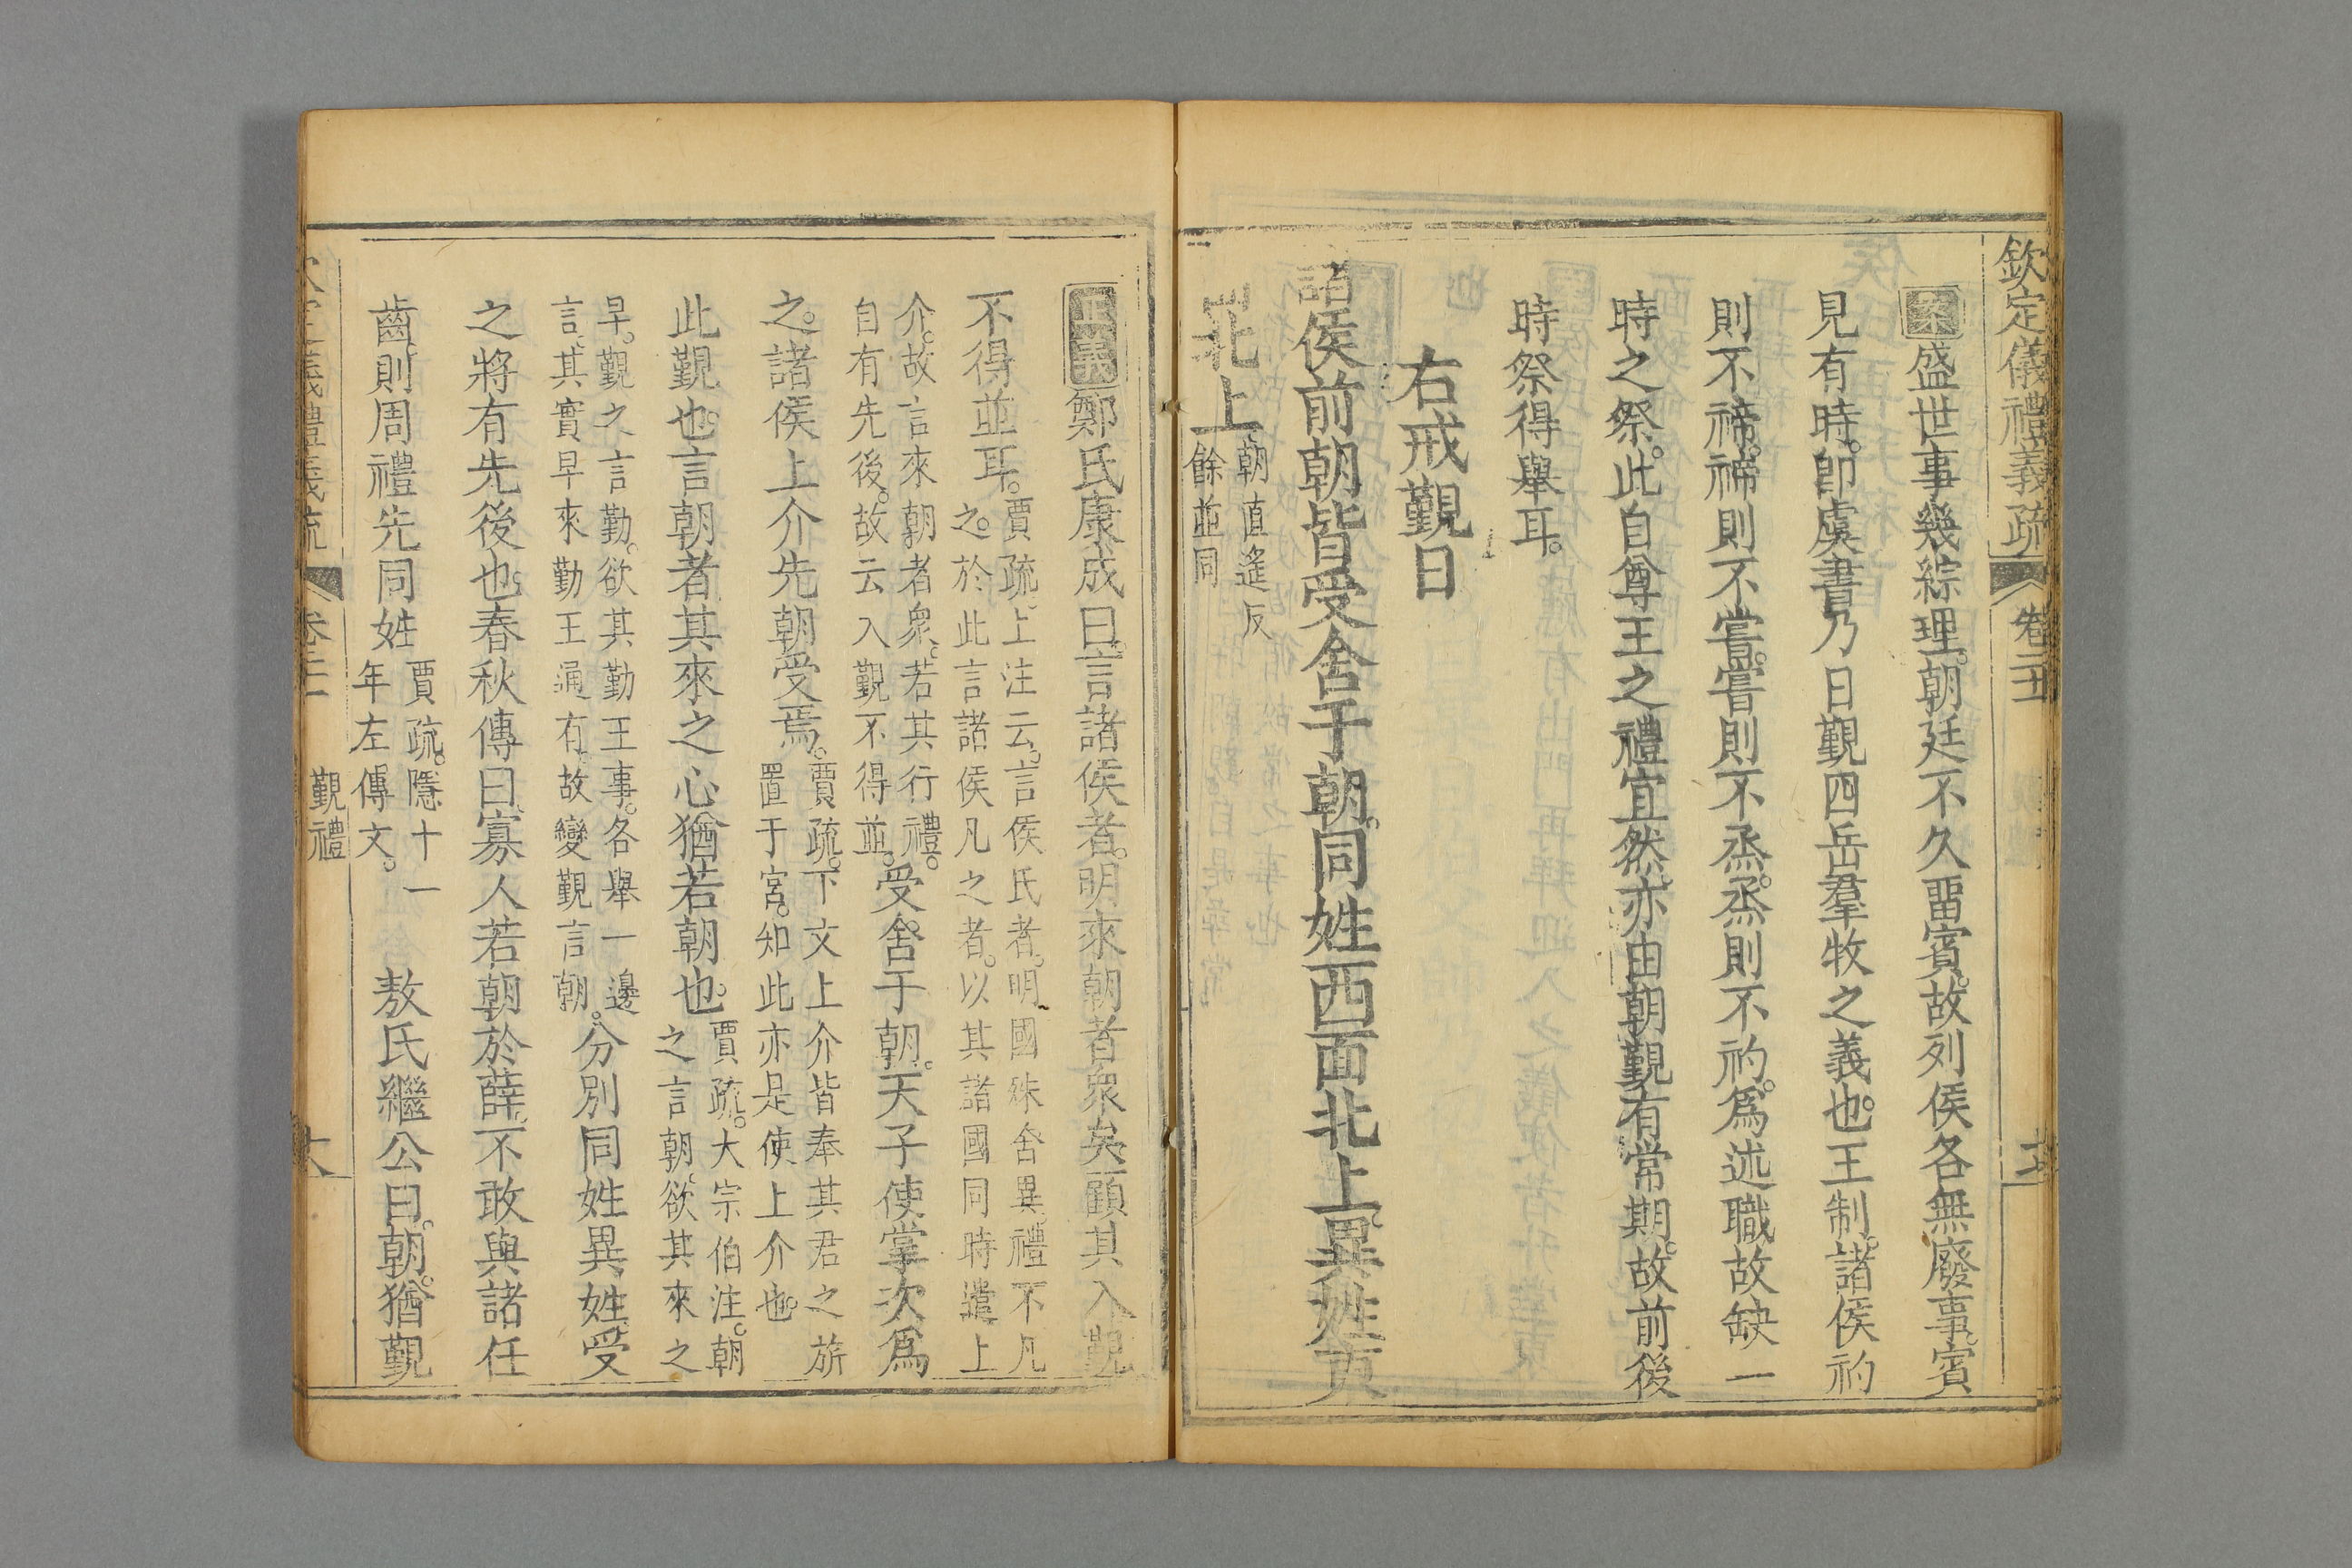 欽定儀禮義疏 卷二十一
案盛世事幾綜理朝廷不久畱賓故列侯各無廢事賓
見有時卽虞書乃日覲四岳羣牧之義也王制諸侯礿
則不禘禘則不嘗嘗則不烝烝則不礿爲述職故缺一
時之祭此自尊王之禮宜然亦由朝覲有常期故前後
時祭得舉耳
右戒覲日
諸侯前朝皆受舍于朝同姓西面北上異姓東
面北上
朝直遙反
餘並同
正義鄭氏康成曰言諸侯者明來朝者衆矣顧其入覲
不得並耳
賈疏上注云言侯氏者明國殊舍異禮不凡
之於此言諸侯凡之者以其諸國同時遣上
介故言來朝者衆若其行禮
自有先後故云入覲不得並
受舍于朝天子使掌次爲
之諸侯上介先朝受焉
賈疏下文上介皆奉其君之旂
置于宮知此亦是使上介也
此覲也言朝者其來之心猶若朝也
賈疏大宗伯注朝
之言朝欲其來之
早覲之言勤欲其勤王事各舉一邊
言其實早來勤王通有故變覲言朝
分別同姓異姓受
之將有先後也春秋傳曰寡人若朝於薛不敢與諸任
齒則周禮先同姓
賈疏隱十一
年左傳文
敖氏繼公曰朝猶覲
卷二十一 覲禮